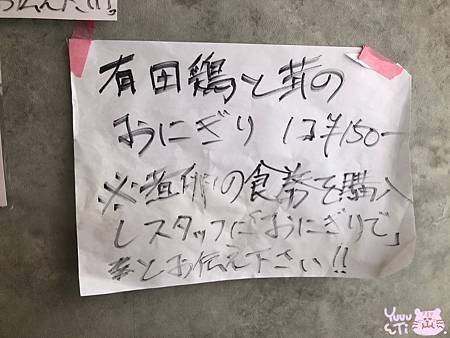 有田鶏と茸の
おにぎり 1コ¥150-
※の食券を購入
しスタッフに「おにぎりで」
とお伝え下さい!!
Yuuu
Ti